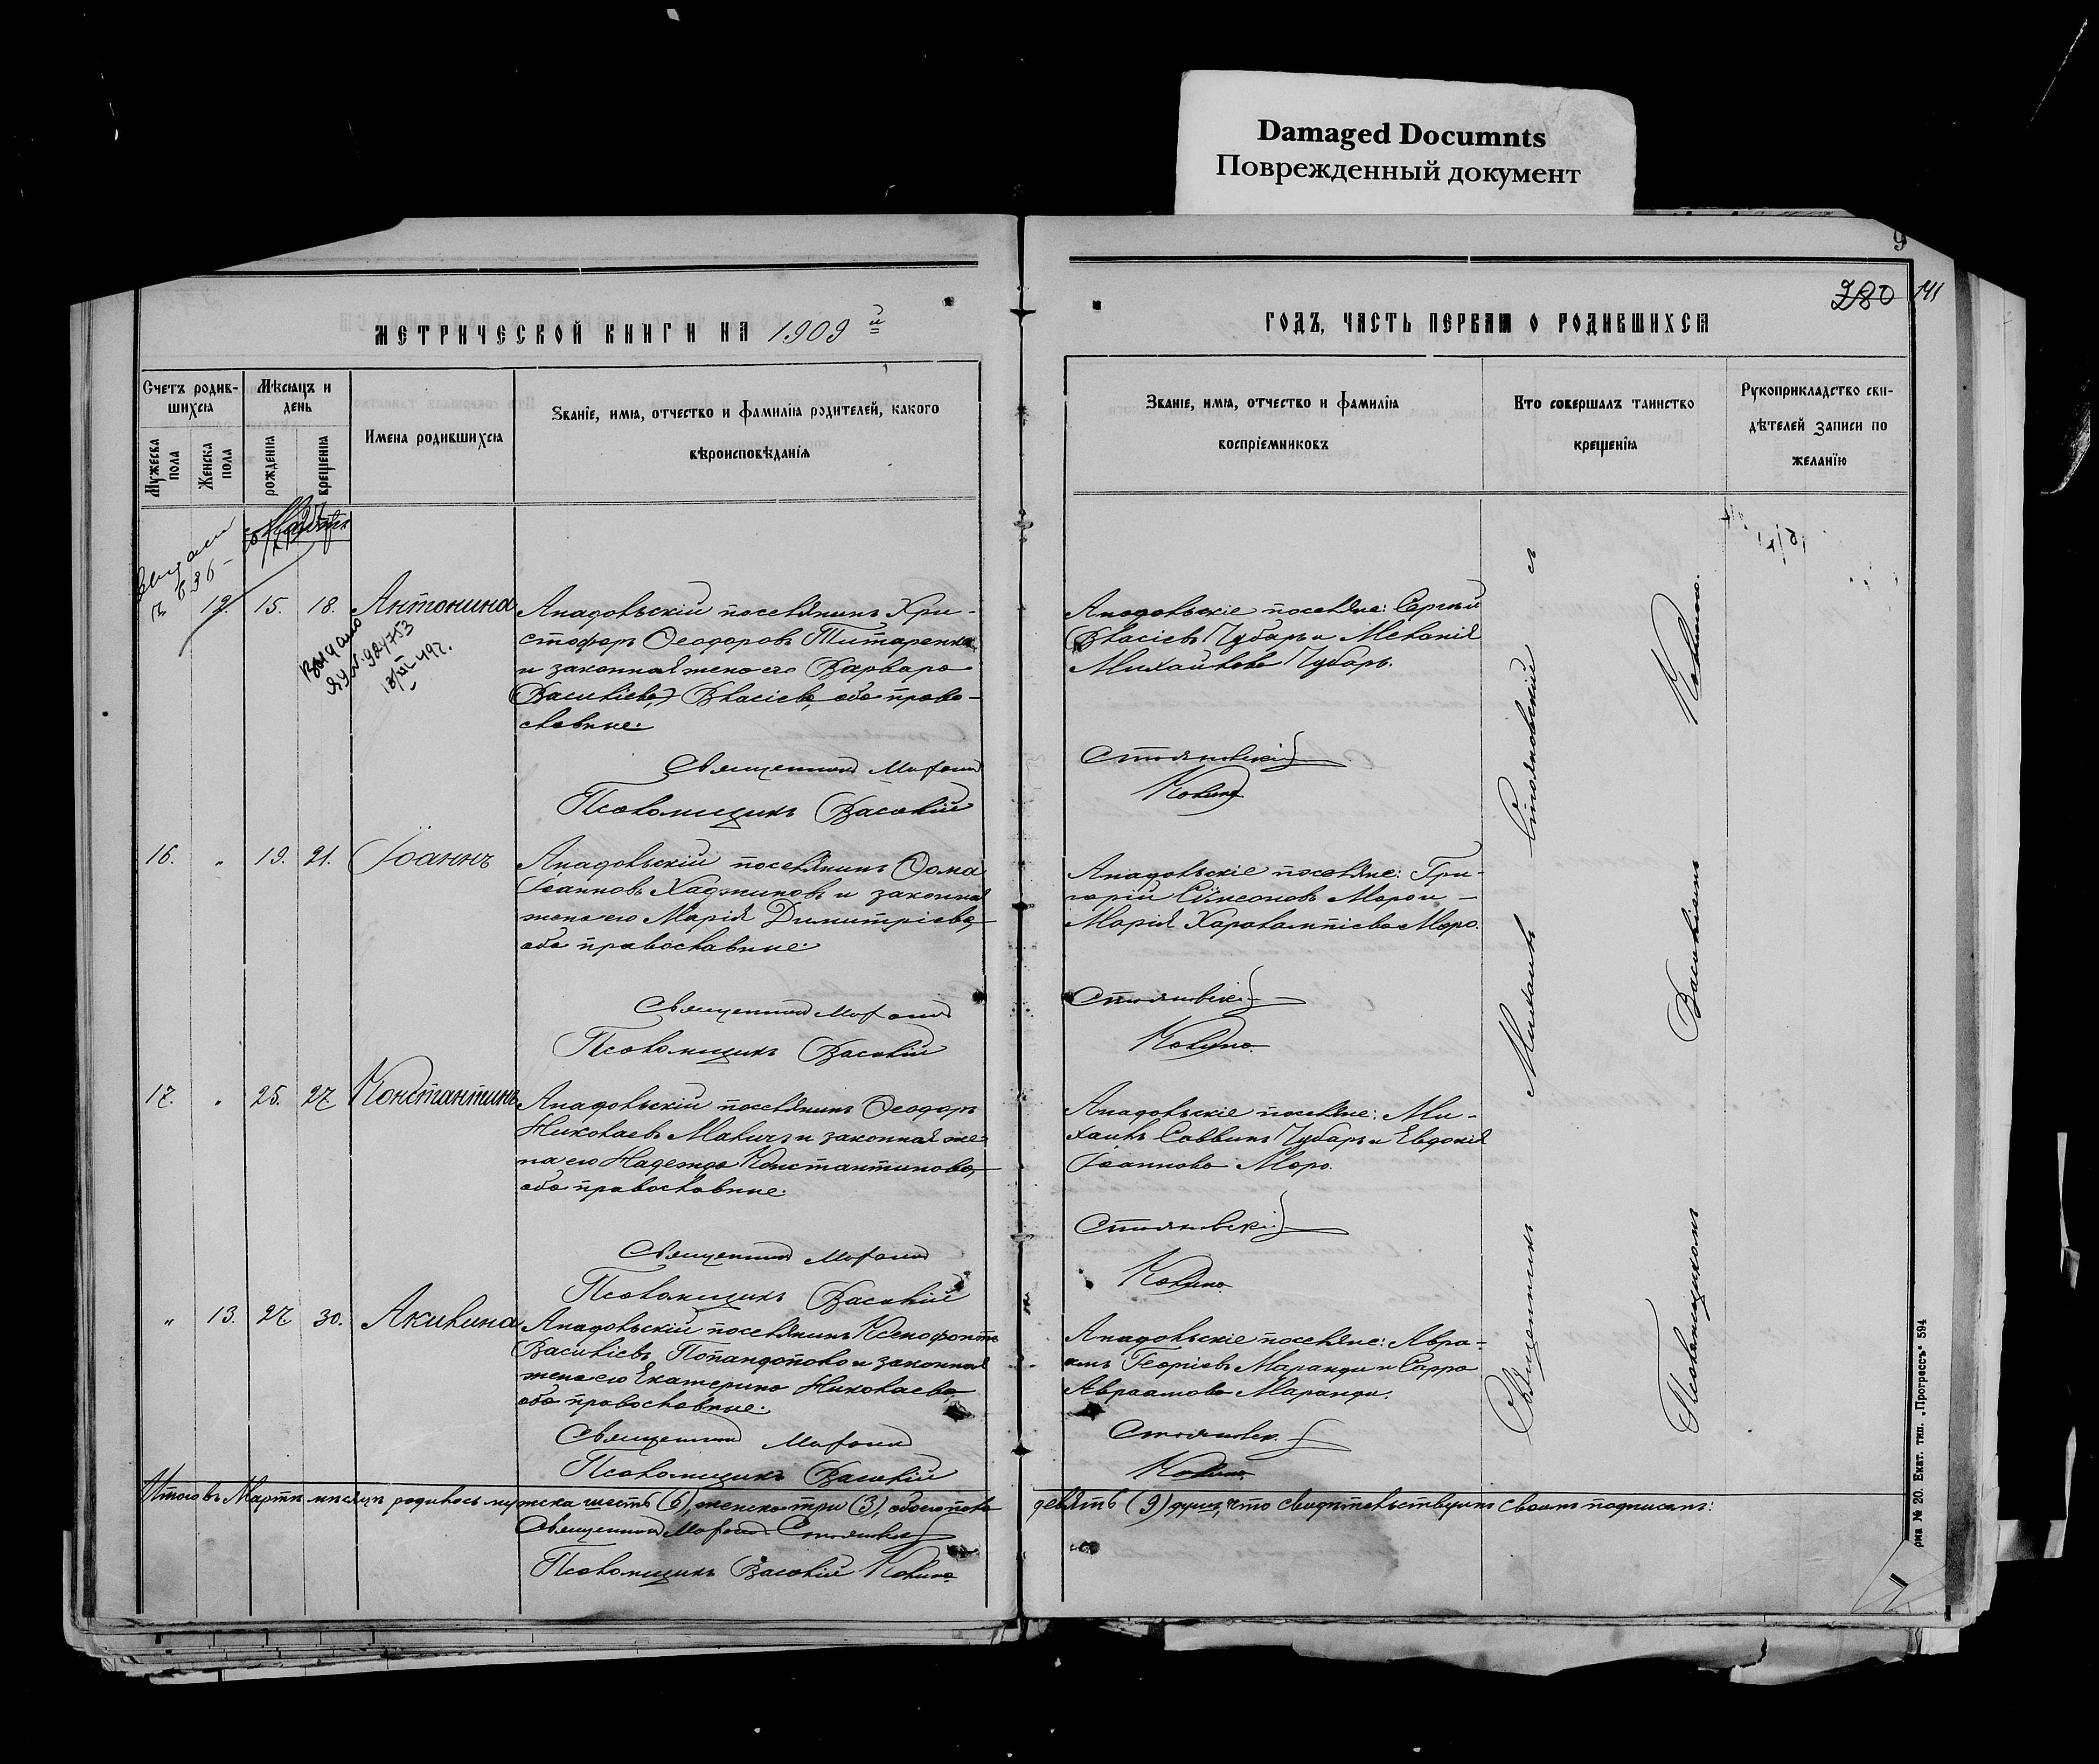 Damaged Documnts
Поврежденный документ
9
280 141
МЕТРИЧЕСКОЙ КНИГИ НА 1909 й
ГОДЪ, ЧАСТЬ ПЕРВАЯ О РОДИВШИХСЯ
Счетъ родив-
шихся
Мужеска
пола
Женска
пола
Мѣсяцъ и
день
рожденія
крещенія
Имена родившихся
Званіе, имя, отчество и фамилія родителей, какого
вѣроисповѣданія
Званіе, имя, отчество и фамилія
воспріемниковъ
Кто совершалъ таинство
крещенія
Рукоприкладство сви-
дѣтелей записи по
желанію
12. 15. 18. Антонина
Выдано
ЯУ № 924753
Анадольскій поселянинъ Хри-
стофоръ Ѳеодоровъ Титаренко
и законная жена его Варвара
(Васильева) Власіева, оба право-
славные.
Священникъ
Псаломщикъ Василій
Анадольскіе поселяне: Сергій
Власіевъ Чубаръ и Меланія
Михайлова Чубаръ.
Стояновскій
16. „ 19. 21. Іоаннъ
Анадольскій поселянинъ Ѳома
Іоанновъ Хаджиновъ и законная
жена его Марія Димитріева,
оба православные.
Священникъ
Псаломщикъ Василій
Анадольскіе поселяне: Гри-
горій Сѵмеоновъ Моро и
Марія Харалампіева Моро.
Стояновскій
17. „ 25. 27. Константинъ
Анадольскій поселянинъ Ѳеодоръ
Николаевъ Маличъ и законная же-
на его Надежда Константинова,
оба православные.
Священникъ
Псаломщикъ Василій
Анадольскіе поселяне: Ми-
хаилъ Саввинъ Чубаръ и Евдокія
Іоаннова Моро.
Стояновскій
„ 13. 27. 30. Акилина
Анадольскій поселянинъ Ксенофонтъ
Василіевъ Попандопуло и законная
жена его Екатерина Николаева,
оба православные.
Священникъ
Псаломщикъ Василій
Анадольскіе поселяне: Авра-
амъ Георгіевъ Маранди и Сарра
Авраамова Маранди.
Священникъ Михаилъ Стояновскій съ
Псаломщикомъ Василіемъ
Итого въ Мартѣ мѣсяцѣ родилось мужска шесть (6), женска три (3), обоего пола
девять (9) душъ, что свидѣтельствуемъ своимъ подписомъ:
Священникъ
Псаломщикъ Василій
рма № 20. Екат. тип. „Прогрессъ“ 594